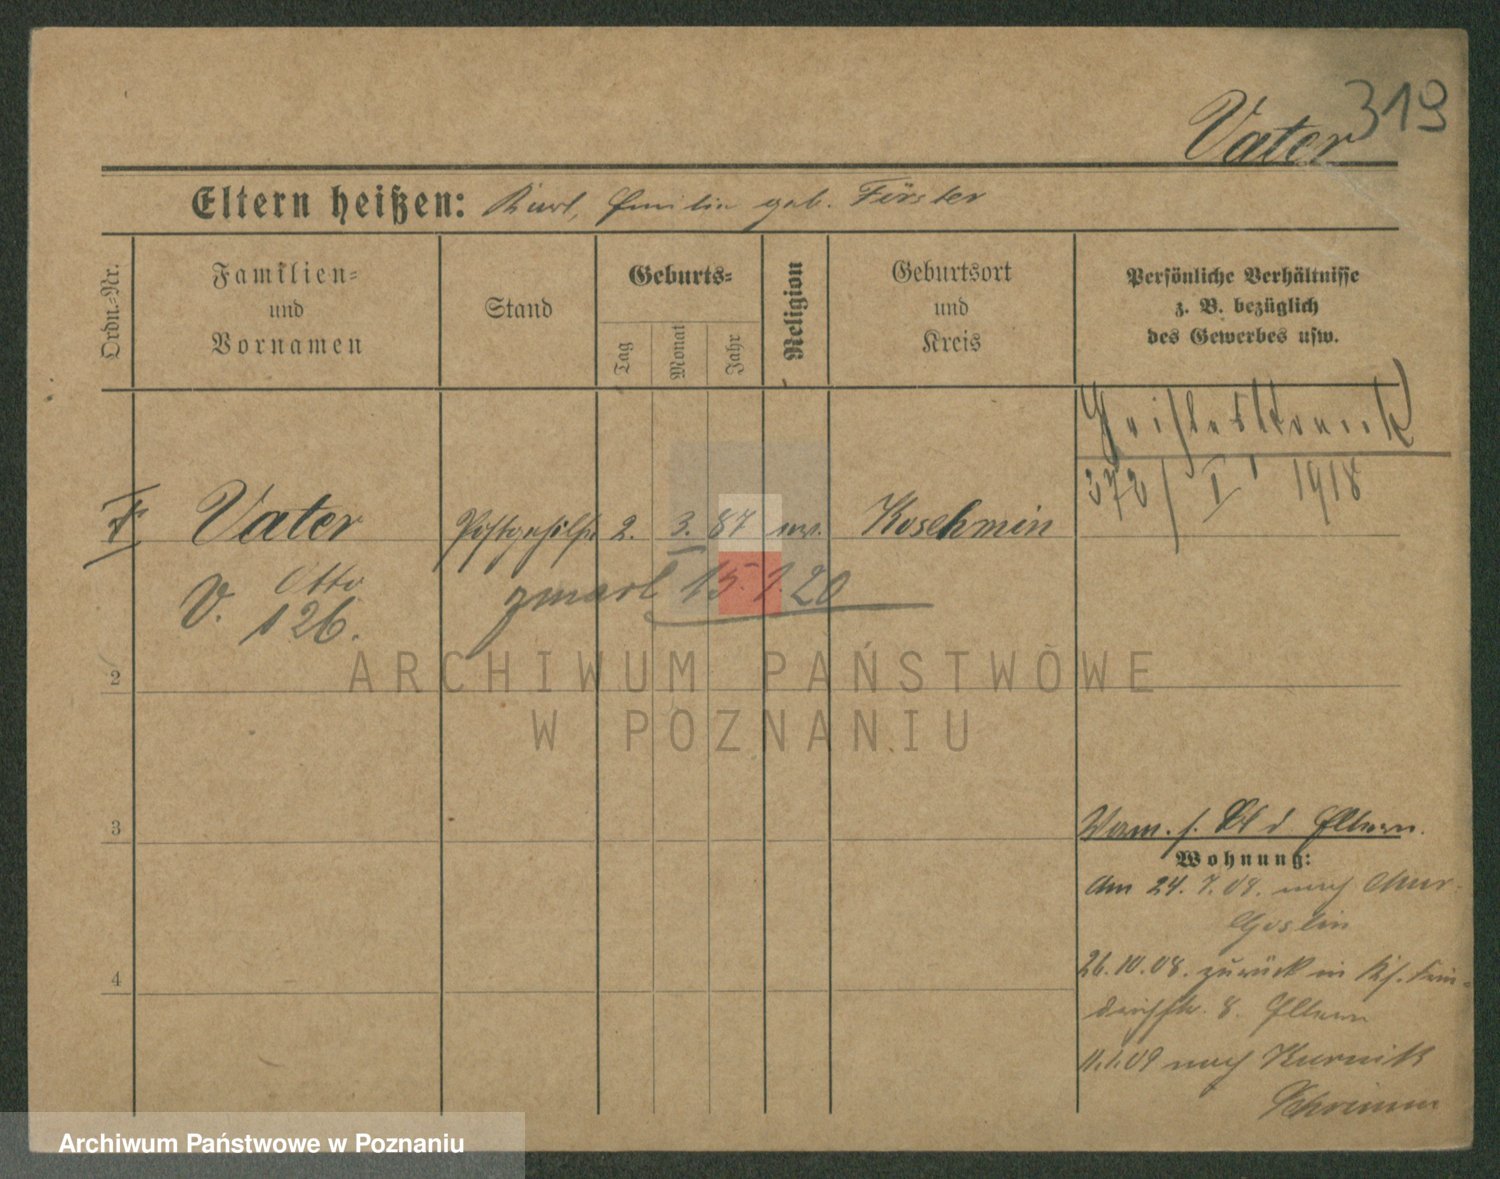 319
Vater
Eltern heißen: Karl, Emilie geb. Förster
Ordn.-Nr.
Familien-
und
Vornamen
Stand
Geburts-
Tag
Monat
Jahr
Religion
Geburtsort
und
Kreis
Persönliche Verhältnisse
z. B. bezüglich
des Gewerbes usw.
372/ I 1918
Vater
Postgehilfe
2. 3. 87
ev.
Koschmin
Otto
V. 126.
15.1.20
2
3
4
d Eltern.
Wohnung:
Am 24. 7. 08. nach Mur.
Goslin
26.10.08. zurück in
8. Eltern
11.1.09 nach Kurnik
Schrimm
ARCHIWUM PAŃSTWOWE
W POZNANIU
Archiwum Państwowe w Poznaniu